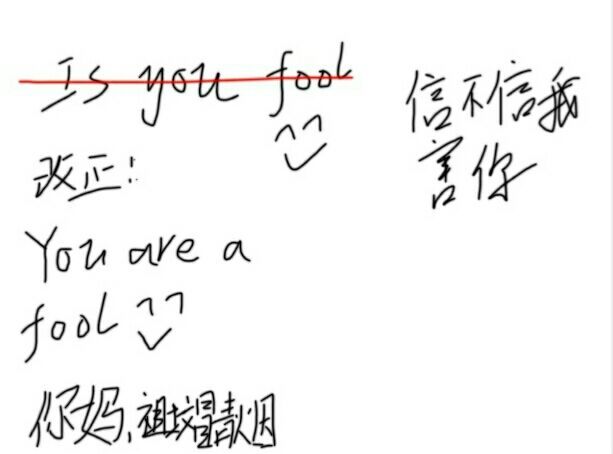 Is you fool
信不信我
害你
改正:
You are a
fool
你妈,祖坟冒青烟